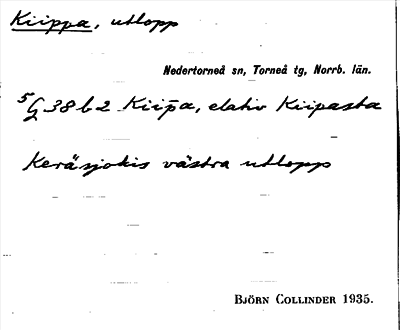 Kiippa, utlopp
Nedertorneå sn, Torneå tg, Norrb. län.
5 G 38 b 2 Kiip̄a, elativ Kiipasta
Keräsjokis västra utlopp
BJÖRN COLLINDER 1935.